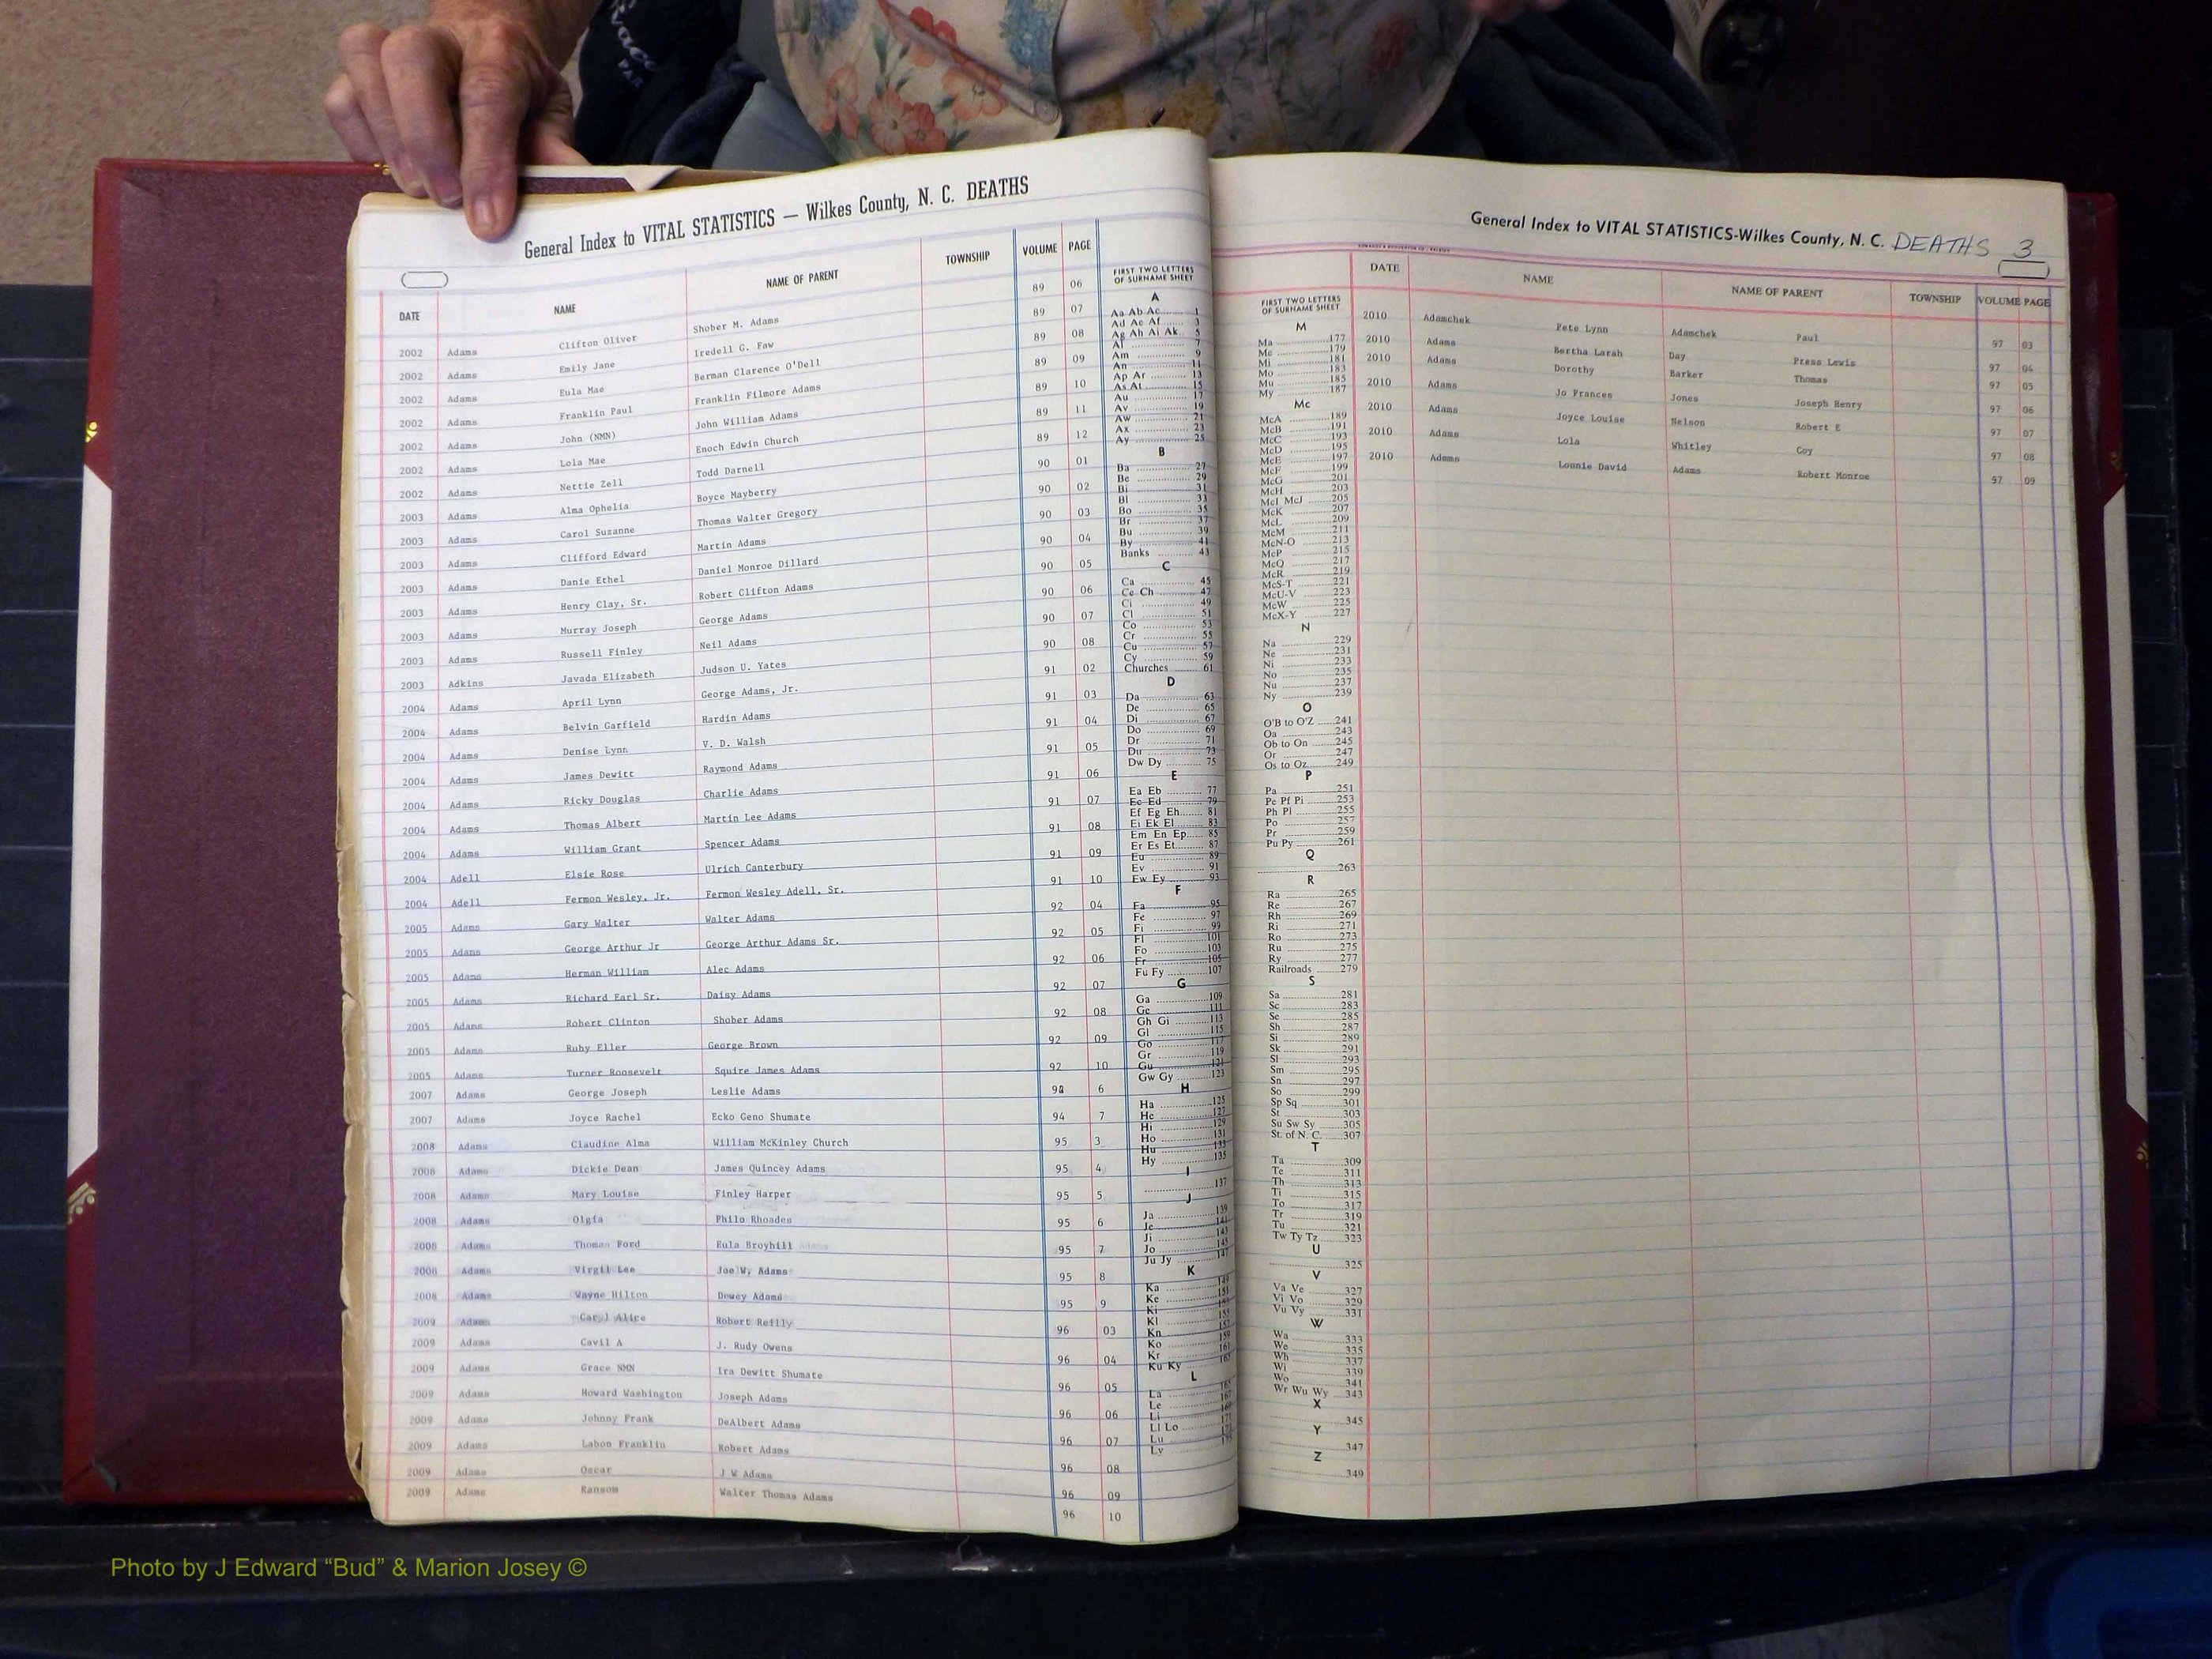 General Index to VITAL STATISTICS — Wilkes County, N. C. DEATHS
DATE NAME NAME OF PARENT TOWNSHIP VOLUME PAGE
2002 Adams Clifton Oliver Shober M. Adams 89 06
2002 Adams Emily Jane Iredell G. Faw 89 07
2002 Adams Eula Mae Berman Clarence O'Dell 89 08
2002 Adams Franklin Paul Franklin Filmore Adams 89 09
2002 Adams John (NMN) John William Adams 89 10
2002 Adams Lola Mae Enoch Edwin Church 89 11
2002 Adams Nettie Zell Todd Darnell 89 12
2003 Adams Alma Ophelia Boyce Mayberry 90 01
2003 Adams Carol Suzanne Thomas Walter Gregory 90 02
2003 Adams Clifford Edward Martin Adams 90 03
2003 Adams Danie Ethel Daniel Monroe Dillard 90 04
2003 Adams Henry Clay, Sr. Robert Clifton Adams 90 05
2003 Adams Murray Joseph George Adams 90 06
2003 Adams Russell Finley Neil Adams 90 07
2003 Adkins Javada Elizabeth Judson U. Yates 90 08
2004 Adams April Lynn George Adams, Jr. 91 02
2004 Adams Belvin Garfield Hardin Adams 91 03
2004 Adams Denise Lynn V. D. Walsh 91 04
2004 Adams James Dewitt Raymond Adams 91 05
2004 Adams Ricky Douglas Charlie Adams 91 06
2004 Adams Thomas Albert Martin Lee Adams 91 07
2004 Adams William Grant Spencer Adams 91 08
2004 Adell Elsie Rose Ulrich Canterbury 91 09
2004 Adell Fermon Wesley, Jr. Fermon Wesley Adell, Sr. 91 10
2005 Adams Gary Walter Walter Adams 92 04
2005 Adams George Arthur Jr George Arthur Adams Sr. 92 05
2005 Adams Herman William Alec Adams 92 06
2005 Adams Richard Earl Sr. Daisy Adams 92 07
2005 Adams Robert Clinton Shober Adams 92 08
2005 Adams Ruby Eller George Brown 92 09
2005 Adams Turner Roosevelt Squire James Adams 92 10
2007 Adams George Joseph Leslie Adams 94 6
2007 Adams Joyce Rachel Ecko Geno Shumate 94 7
2008 Adams Claudine Alma William McKinley Church 95 3
2008 Adams Dickie Dean James Quincey Adams 95 4
2008 Adams Mary Louise Finley Harper 95 5
2008 Adams Olgfa Philo Rhoades 95 6
2008 Adams Thomas Ford Eula Broyhill Adams 95 7
2008 Adams Virgil Lee Joe W. Adams 95 8
2008 Adams Wayne Hilton Dewey Adams 95 9
2009 Adams Caryl Alice Robert Reilly 96 03
2009 Adams Cavil A J. Rudy Owens 96 04
2009 Adams Grace NMN Ira Dewitt Shumate 96 05
2009 Adams Howard Washington Joseph Adams 96 06
2009 Adams Johnny Frank DeAlbert Adams 96 07
2009 Adams Labon Franklin Robert Adams 96 08
2009 Adams Oscar J W Adams 96 09
2009 Adams Ransom Walter Thomas Adams 96 10
FIRST TWO LETTERS
OF SURNAME SHEET
A
Aa Ab Ac 1
Ad Ae Af 3
Ag Ah Ai Ak 5
Al 7
Am 9
An 11
Ap Ar 13
As At 15
Au 17
Av 19
Aw 21
Ax 23
Ay 25
B
Ba 27
Be 29
Bi 31
Bl 33
Bo 35
Br 37
Bu 39
By 41
Banks 43
C
Ca 45
Ce Ch 47
Ci 49
Cl 51
Co 53
Cr 55
Cu 57
Cy 59
Churches 61
D
Da 63
De 65
Di 67
Do 69
Dr 71
Du 73
Dw Dy 75
E
Ea Eb 77
Ec Ed 79
Ef Eg Eh 81
Ei Ek El 83
Em En Ep 85
Er Es Et 87
Eu 89
Ev 91
Ew Ey 93
F
Fa 95
Fe 97
Fi 99
Fl 101
Fo 103
Fr 105
Fu Fy 107
G
Ga 109
Ge 111
Gh Gi 113
Gl 115
Go 117
Gr 119
Gu 121
Gw Gy 123
H
Ha 125
He 127
Hi 129
Ho 131
Hu 133
Hy 135
I
137
J
Ja 139
Je 141
Ji 143
Jo 145
Ju Jy 147
K
Ka 149
Ke 151
Ki 153
Kl 155
Kn 157
Ko 159
Kr 161
Ku Ky 163
L
La 165
Le 167
Li 169
Ll Lo 171
Lu 173
Ly
General Index to VITAL STATISTICS-Wilkes County, N. C. DEATHS 3
FIRST TWO LETTERS
OF SURNAME SHEET
M
Ma 177
Me 179
Mi 181
Mo 183
Mu 185
My 187
Mc
McA 189
McB 191
McC 193
McD 195
McE 197
McF 199
McG 201
McH 203
McI McJ 205
McK 207
McL 209
McM 211
McN-O 213
McP 215
McQ 217
McR 219
McS-T 221
McU-V 223
McW 225
McX-Y 227
N
Na 229
Ne 231
Ni 233
No 235
Nu 237
Ny 239
O
O'B to O'Z 241
Oa 243
Ob to On 245
Or 247
Os to Oz 249
P
Pa 251
Pe Pf Pi 253
Ph Pl 255
Po 257
Pr 259
Pu Py 261
Q
263
R
Ra 265
Re 267
Rh 269
Ri 271
Ro 273
Ru 275
Ry 277
Railroads 279
S
Sa 281
Sc 283
Se 285
Sh 287
Si 289
Sk 291
Sl 293
Sm 295
Sn 297
So 299
Sp Sq 301
St 303
Su Sw Sy 305
St. of N. C. 307
T
Ta 309
Te 311
Th 313
Ti 315
To 317
Tr 319
Tu 321
Tw Ty Tz 323
U
325
V
Va Ve 327
Vi Vo 329
Vu Vy 331
W
Wa 333
We 335
Wh 337
Wi 339
Wo 341
Wr Wu Wy 343
X
345
Y
347
Z
349
DATE NAME NAME OF PARENT TOWNSHIP VOLUME PAGE
2010 Adamchek Pete Lynn Adamchek Paul 97 03
2010 Adams Bertha Larah Day Press Lewis 97 04
2010 Adams Dorothy Barker Thomas 97 05
2010 Adams Jo Frances Jones Joseph Henry 97 06
2010 Adams Joyce Louise Nelson Robert E 97 07
2010 Adams Lola Whitley Coy 97 08
2010 Adams Lonnie David Adams Robert Monroe 97 09
Photo by J Edward “Bud” & Marion Josey ©